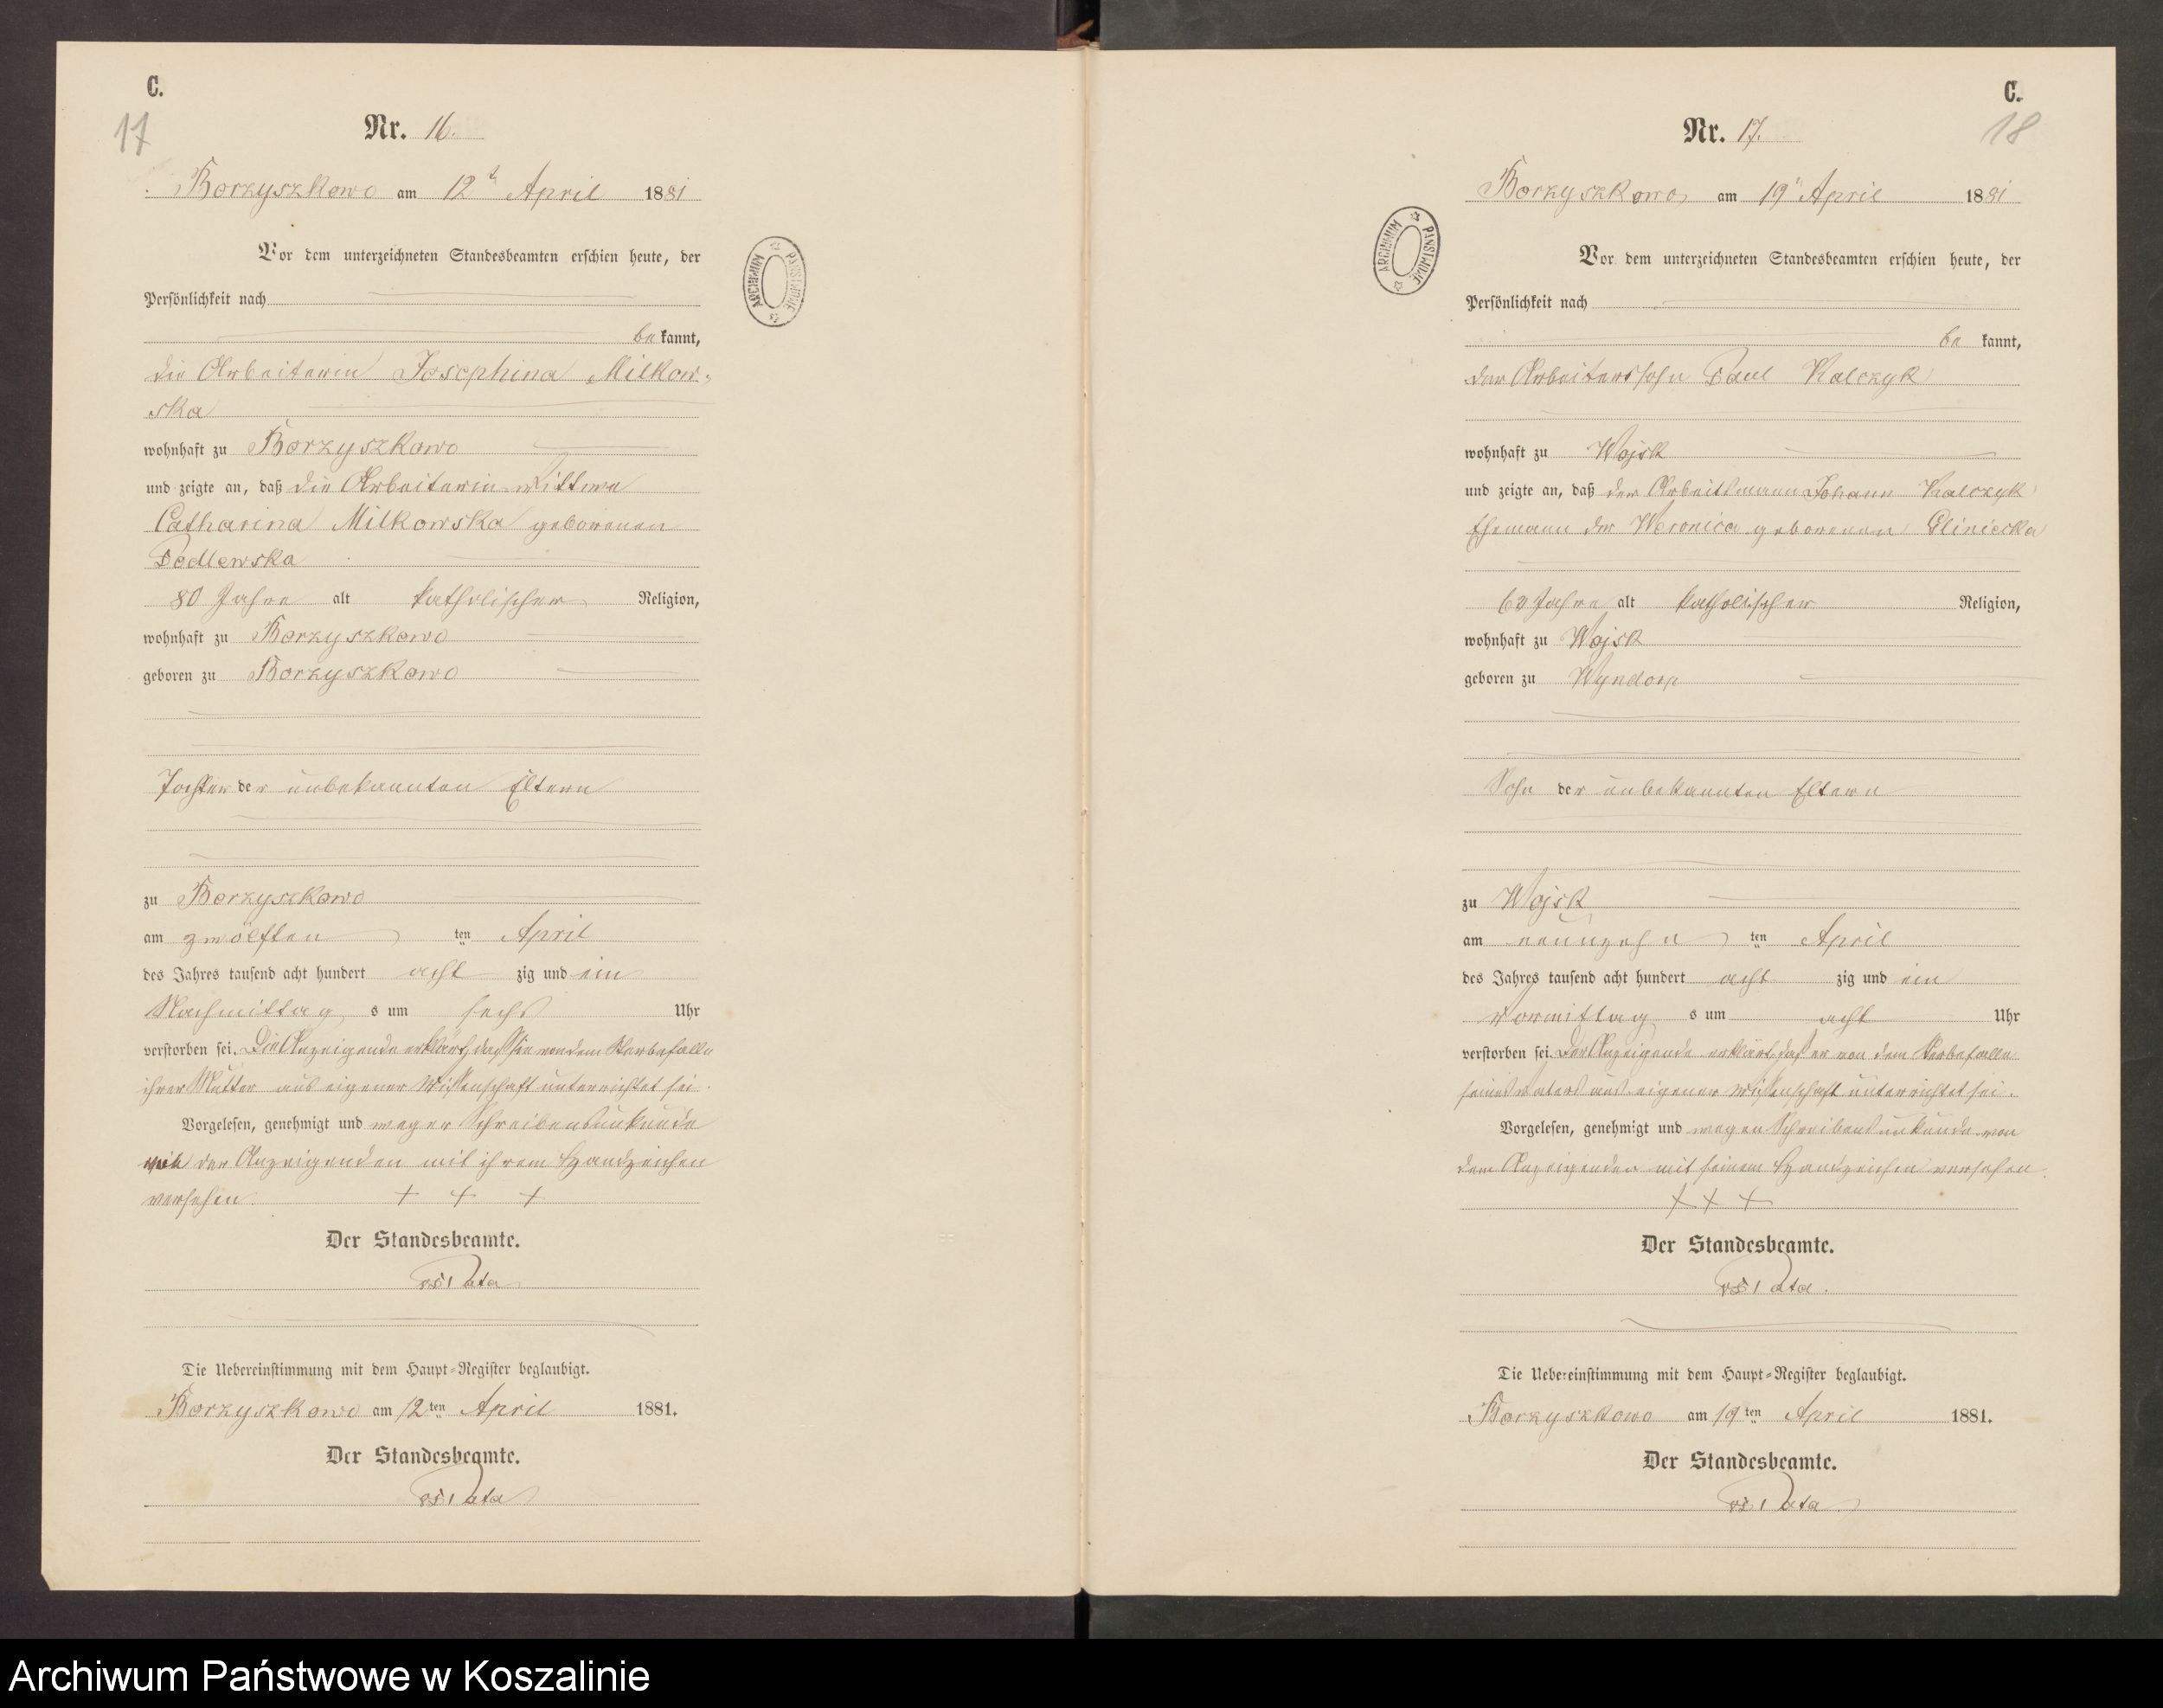 C.
17
Nr. 16.
Borzyszkowo am 12t April 1881
Vor dem unterzeichneten Standesbeamten erschien heute, der
Persönlichkeit nach
be kannt,
die Arbeiterin Josephina Milkow-
ska
wohnhaft zu Borzyszkowo
und zeigte an, daß die Arbeiterin Wittwe
Catharina Milkowska geborenen
Podlewska
80 Jahre alt katholischer Religion,
wohnhaft zu Borzyszkowo
geboren zu Borzyszkowo
Tochter der unbekannten Eltern
zu Borzyszkowo
am zwölften ten April
des Jahres tausend acht hundert acht zig und ein
Nachmittag s um sechs Uhr
verstorben sei. Die Anzeigende erklärt, daß sie von dem Sterbefalle
ihrer Mutter aus eigener Wissenschaft unterrichtet sei.
Vorgelesen, genehmigt und wegen Schreibensunkunde
von der Anzeigenden mit ihrem Handzeichen
versehen. + + +
Der Standesbeamte.
Die Uebereinstimmung mit dem Haupt-Register beglaubigt.
Borzyszkowo am 12 ten April 1881.
Der Standesbeamte.
ARCHIWUM PAŃSTWOWE
C.
18
Nr. 17.
Borzyszkowo am 19t April 1881
Vor dem unterzeichneten Standesbeamten erschien heute, der
Persönlichkeit nach
be kannt,
der Arbeiterssohn Paul Kalczyk
wohnhaft zu Wojsk
und zeigte an, daß der Arbeitsmann Johann Kalczyk
Ehemann der Weronica geborenen Gliniecka
Jahre alt katholischer Religion,
wohnhaft zu Wojsk
geboren zu
Sohn der unbekannten Eltern
zu Wojsk
am neunzehn ten April
des Jahres tausend acht hundert acht zig und ein
Vormittag s um acht Uhr
verstorben sei. Der Anzeigende erklärt, daß er von dem Sterbefalle
seines Vaters aus eigener Wissenschaft unterrichtet sei.
Vorgelesen, genehmigt und wegen Schreibensunkunde von
dem Anzeigenden mit seinem Handzeichen versehen.
+ + +
Der Standesbeamte.
Die Uebereinstimmung mit dem Haupt-Register beglaubigt.
Borzyszkowo am 19 ten April 1881.
Der Standesbeamte.
ARCHIWUM PAŃSTWOWE
Archiwum Państwowe w Koszalinie